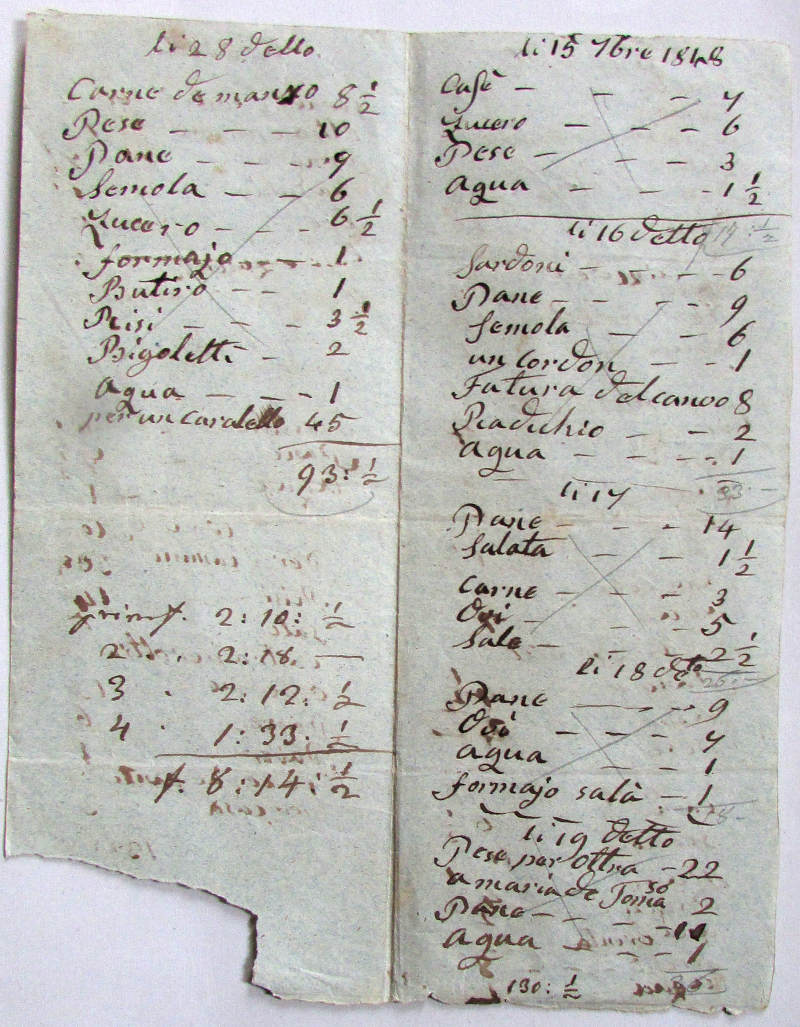 li 28 detto
Carne de manzo 8 1/2
Pese — — — 10
Pane — — — 9
Semola — — 6
Zucero — — — 6 1/2
formajo — — 1
Butirò — — 1
Risi — — — 3 1/2
Bigoletti — 2
Agua — — — 1
per un caratello 45
93: 1/2
prim f. 2: 10: 1/2
2 . 2: 18 —
3 . 2: 12: 1/2
4 . 1: 33: 1/2
f. 8: 14: 1/2
li 15 7bre 1848
Cafè — — — 7
Zucero — — — 6
Pese — — — 3
Agua — — — 1 1/2
17: 1/2
li 16 detto
Sardoni — — — 6
Pane — — — 9
Semola — — 6
un cordon — — 1
Fatura del canvo 8
Radichio — — 2
Agua — — — 1
33 —
li 17
Pane — — — 14
Salata — — 1 1/2
Carne — — — 3
Ovi — — — 5
Sale — — — 2 1/2
26: —
li 18 deto
Pane — — — 9
Ovi — — — 7
Agua — — 1
formajo salà — 1
18 —
li 19 detto
Pese per oltra — 22
a maria de Tomaso 2
Pane — — — 11
Agua — — 1
130: 1/2